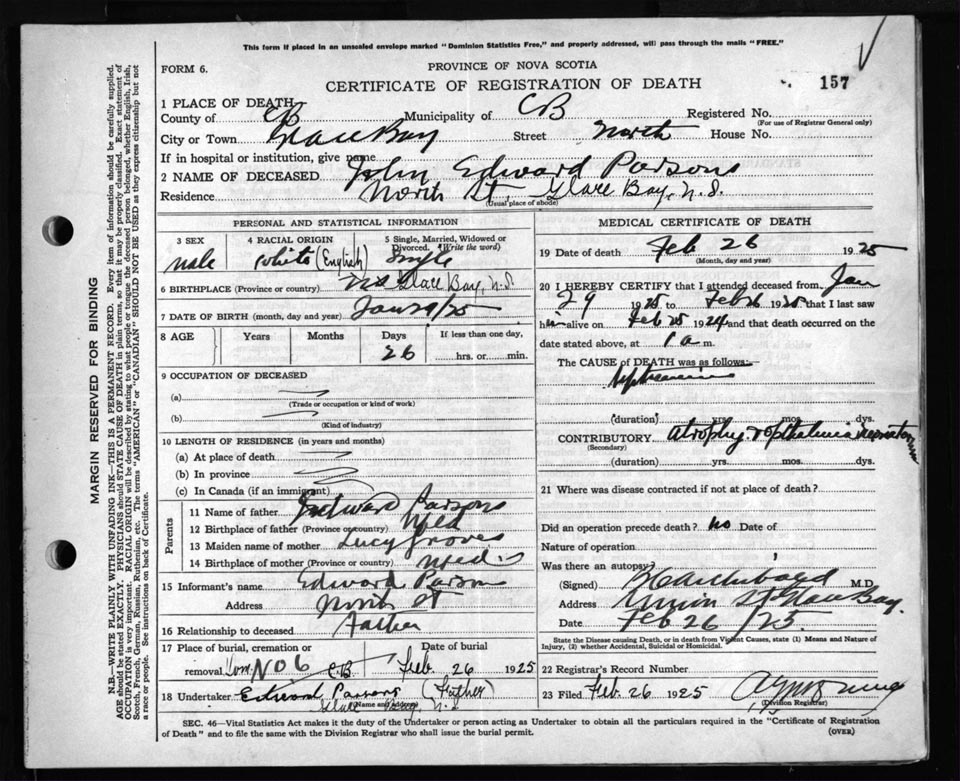 This form if placed in an unsealed envelope marked "Dominion Statistics Free," and properly addressed, will pass through the mails "FREE."
FORM 6.
PROVINCE OF NOVA SCOTIA
CERTIFICATE OF REGISTRATION OF DEATH
157
1 PLACE OF DEATH
County of CB Municipality of CB Registered No.
(For use of Registrar General only)
City or Town Glace Bay Street North House No.
If in hospital or institution, give name
2 NAME OF DECEASED John Edward Parsons
Residence North St, Glace Bay, N.S.
(Usual place of abode)
PERSONAL AND STATISTICAL INFORMATION
3 SEX male
4 RACIAL ORIGIN white (English)
5 Single, Married, Widowed or Divorced. (Write the word) Single
6 BIRTHPLACE (Province or country) Glace Bay, N.S.
7 DATE OF BIRTH (month, day and year) Jan 29/25
8 AGE Years Months Days 26 If less than one day, hrs. or min.
9 OCCUPATION OF DECEASED
(a)
(Trade or occupation or kind of work)
(b)
(Kind of industry)
10 LENGTH OF RESIDENCE (in years and months)
(a) At place of death
(b) In province
(c) In Canada (if an immigrant)
Parents
11 Name of father Edward Parsons
12 Birthplace of father (Province or country) Nfld
13 Maiden name of mother Lucy Groves
14 Birthplace of mother (Province or country) Nfld
15 Informant's name Edward Parsons
Address North St
16 Relationship to deceased Father
17 Place of burial, cremation or
removal No 6 CB Feb. 26 1925
18 Undertaker Edward Parsons (Father)
Glace Bay, N.S.
(Name and address)
MEDICAL CERTIFICATE OF DEATH
19 Date of death Feb 26 1925
(Month, day and year)
20 I HEREBY CERTIFY that I attended deceased from Jan
29 1925 to Feb 26 1925 that I last saw
him alive on Feb 25 1924 and that death occurred on the
date stated above, at 1 a m.
The CAUSE of DEATH was as follows:
(duration) yrs. mos. dys.
CONTRIBUTORY
(Secondary)
(duration) yrs. mos. dys.
21 Where was disease contracted if not at place of death?
Did an operation precede death? no Date of
Nature of operation
Was there an autopsy?
(Signed) Archibald M.D.
Address Union St Glace Bay.
Date Feb 26 /25.
State the Disease causing Death, or in death from Violent Causes, state (1) Means and Nature of Injury, (2) whether Accidental, Suicidal or Homicidal.
22 Registrar's Record Number
23 Filed Feb. 26 1925
(Division Registrar)
SEC. 46—Vital Statistics Act makes it the duty of the Undertaker or person acting as Undertaker to obtain all the particulars required in the "Certificate of Registration
of Death" and to file the same with the Division Registrar who shall issue the burial permit.
(OVER)
MARGIN RESERVED FOR BINDING
N.B.—WRITE PLAINLY WITH UNFADING INK—THIS IS A PERMANENT RECORD. Every item of information should be carefully supplied.
AGE should be stated EXACTLY. PHYSICIANS should STATE CAUSE OF DEATH in plain terms, so that it may be properly classified. Exact statement of
OCCUPATION is very important. RACIAL ORIGIN will be described by stating to what people or tongue the deceased person belonged, whether English, Irish,
Scotch, French, German, Russian, Ruthenian, etc. The terms "AMERICAN" or "CANADIAN" SHOULD NOT BE USED as they express citizenship but not
a race or people. See instructions on back of Certificate.